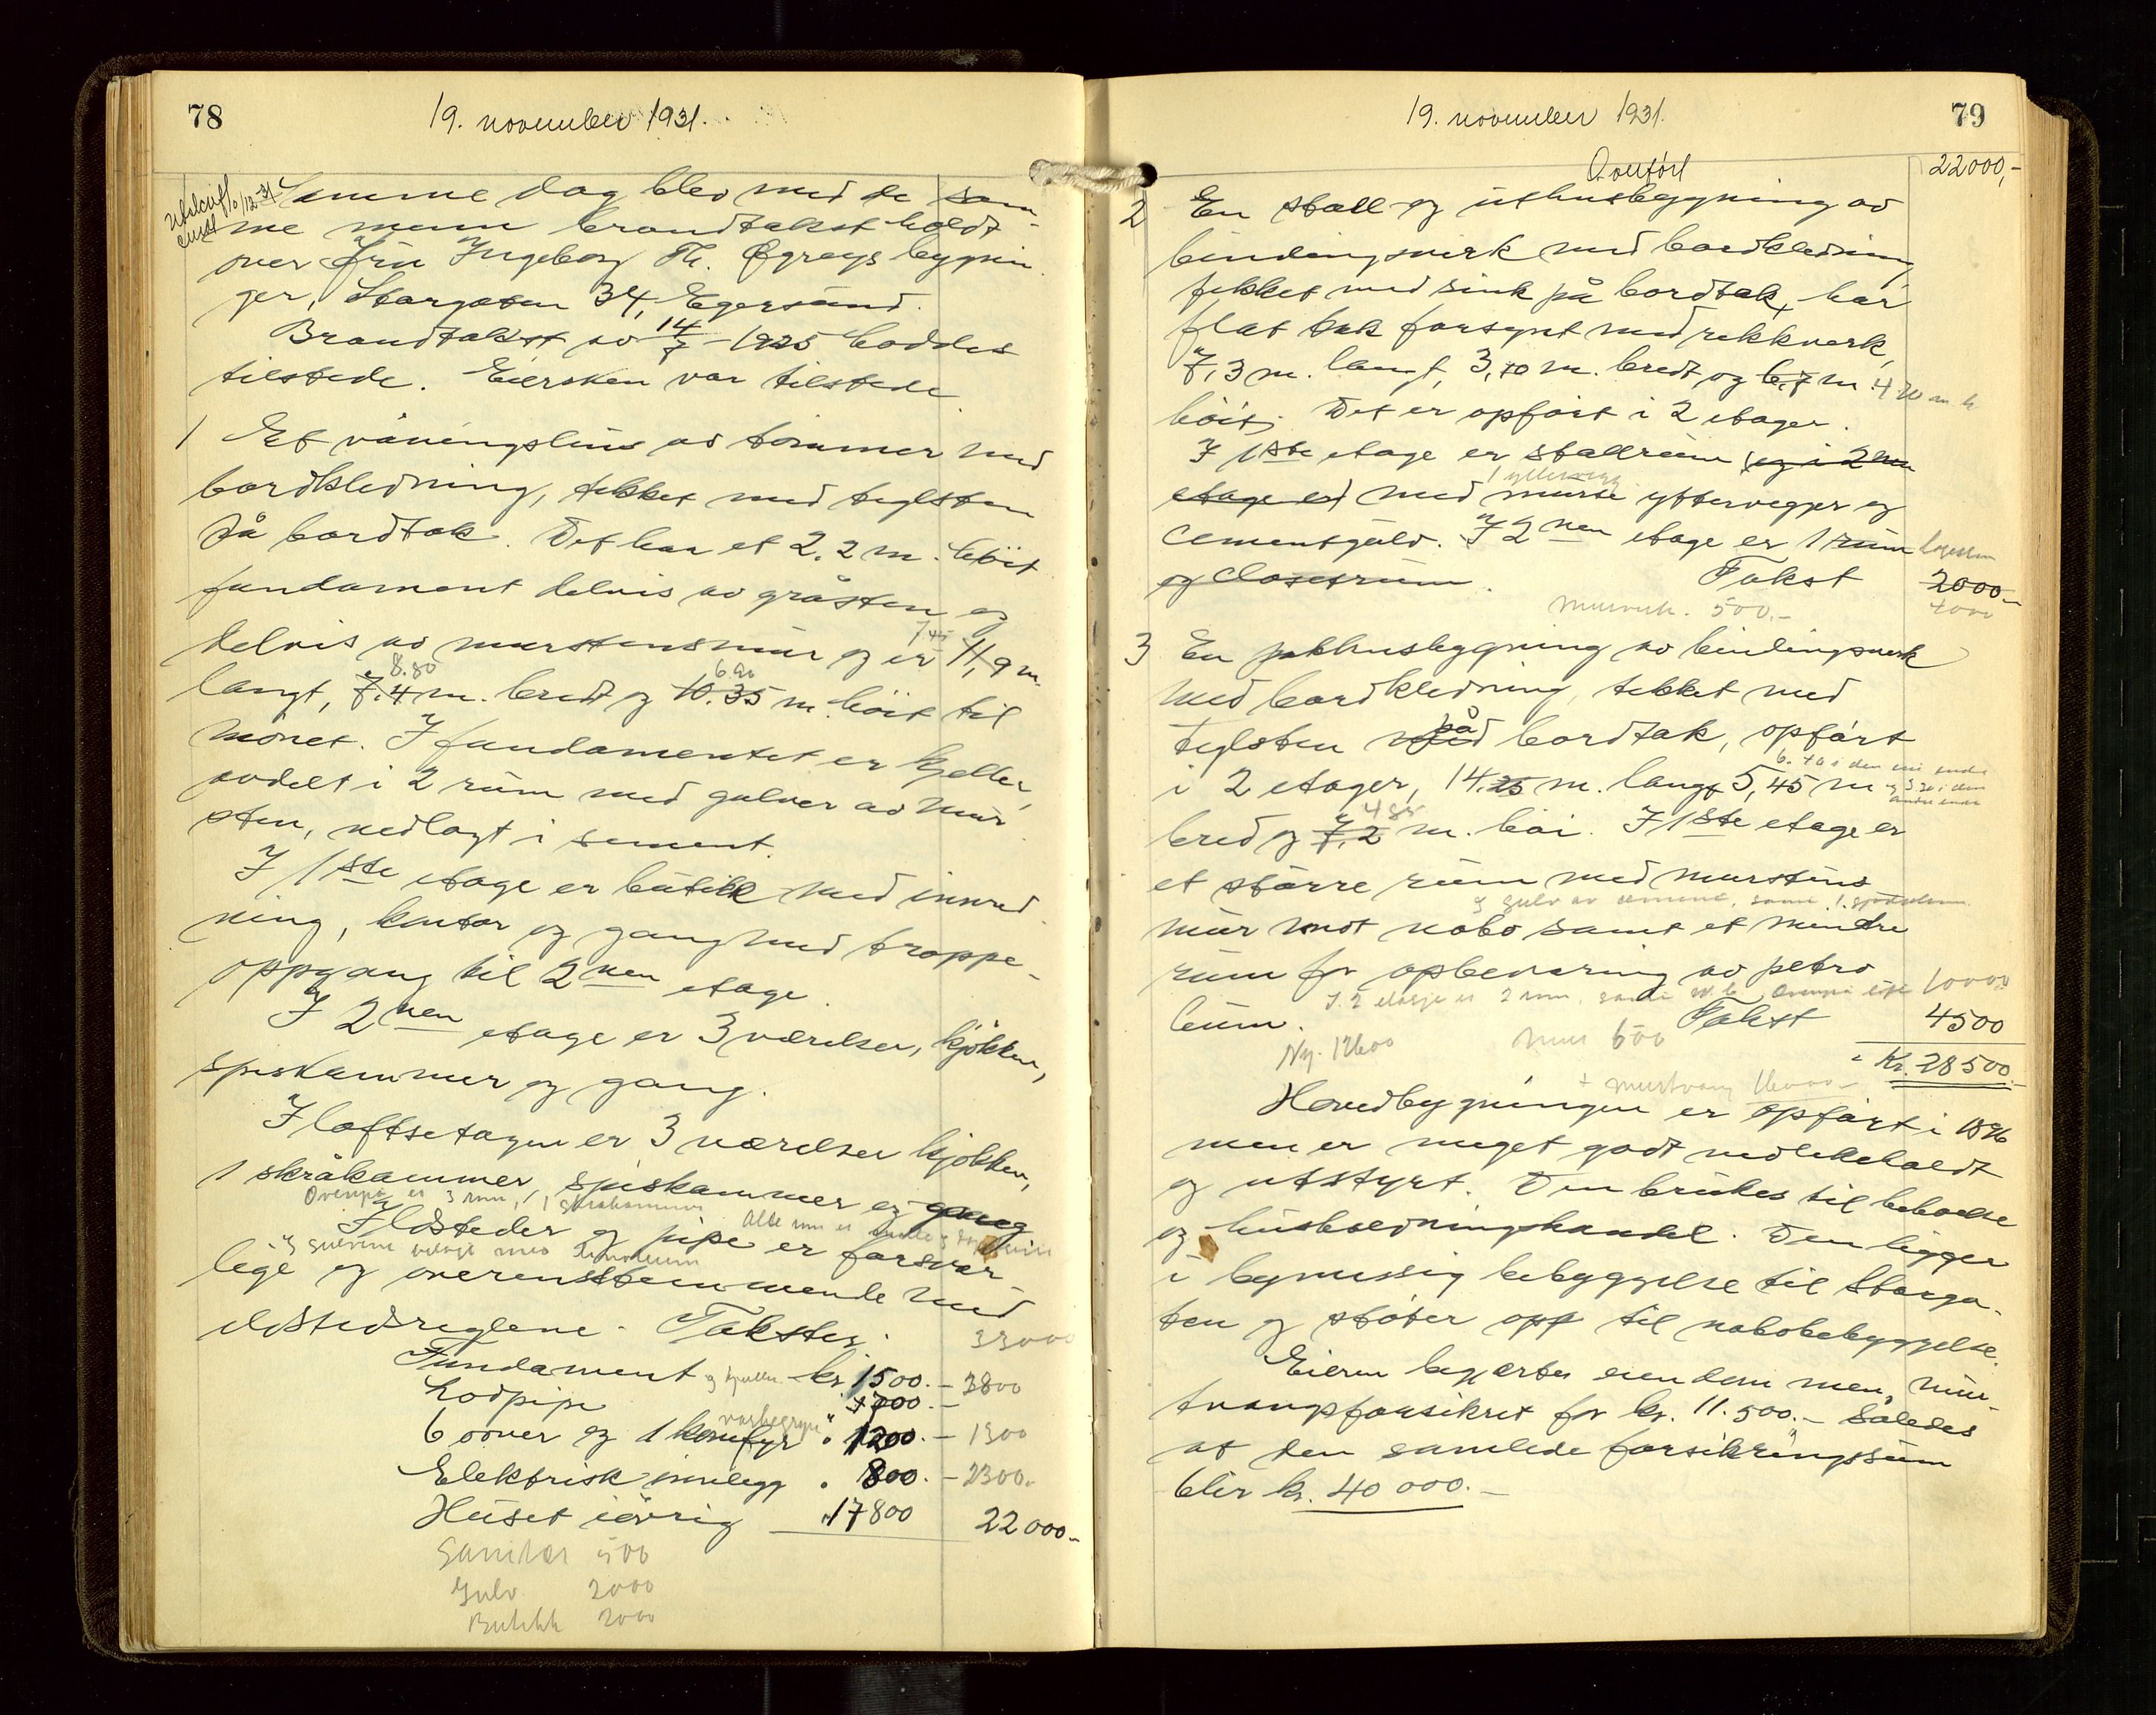 78
19. november 1931.
Utskrift 10/12-31
Samme dag blev med de sam-
me menn brandtakst holdt
over fru Ingeborg Th. Øgreys bygnin-
ger, Storgaten 34, Egersund.
Brandtakst av 14/7 - 1925 haddes
tilstede. Eiersken var tilstede
1 Et våningshus av tømmer med
bordkledning, tekket med teglsten
på bordtak. Det har et 2.2 m. høit
fundament delvis av gråsten og
delvis av murstensmur og er 11,9 m.
7.45
langt, 7.4 m. bredt og 10.35 m. høit til
8.80 6.20
mønet. I fundamentet er kjeller,
avdelt i 2 rum med gulver av mur
sten, nedlagt i sement.
I 1ste etage er butikk med innred-
ning, kontor og gang med troppe-
oppgang til 2nen etage.
I 2nen etage er 3 værelser, kjøkken,
spiskammer og gang.
I loftsetagen er 3 værelser kjøkken,
1 skråkammer, spiskammer og gang
Ovenpå er 3 rum, 1 skråkammer
Alle rum er
Ildsteder og pipe er forsvar-
og gulvene belagt med linoleum
lige og overensstemmende med
ildstedsreglene. Takster.
33000
Fundament og kjeller kr. 1500.- 3800
Lodpipe 700.-
6 ovner og 1 komfyr " 1200.- 1300
Elektrisk innlegg " 800.- 2300.-
Huset iøvrig " 17800 22000.-
Sanitær 500
Gulv 2000
Butikk 2000
19. november 1931.
79
Overført 22000,-
2 En stall og uthusbygning av
bindingsverk med bordkledning
tekket med sink på bordtak, har
flat tak forsynt med rekkverk,
7,3 m. langt, 3,10 m. bredt og 6,7 m. 4.20 m h
høit. Det er opført i 2 etager.
I 1ste etage er stallrum (og i 2nen
1 yttervegg
etage er) med murte yttervegger og
cementgulv. I 2nen etage er 1 rum lagerrum
og closetrum. Takst 2000.-
murverk. 500.- 4000
3 En pakhusbygning av bindingsverk
med bordkledning, tekket med
teglsten med på bordtak, opført
6.70 i den ene ende
i 2 etager, 14.25 m. lang, 5,45 m og 3.20 i den
andre ende
4.85
bred og 7,2 m. høi. I 1ste etage er
et større rum med murstens
og gulv av cement, samt 1
mur mot nabo samt et mindre
rum for opbevaring av petro-
I 2 etasje er 2 rum, samt 10000
leum. Takst 4500
Ny. 12600 mur 600
Kr. 28500.-
+ murtvang 16000.-
Hovedbygningen er opført i 1896
men er meget godt vedlikeholdt
og utstyrt. Den brukes til beboelse
og husholdningshandel. Den ligger
i bymessig bebyggelse til Storga-
ten og støter opp til nabobebyggelse.
Eieren begjærte eiendommen, mur-
tvangsforsikret for kr. 11.500.- Således
at den samlede forsikringssum
blir kr. 40 000.-